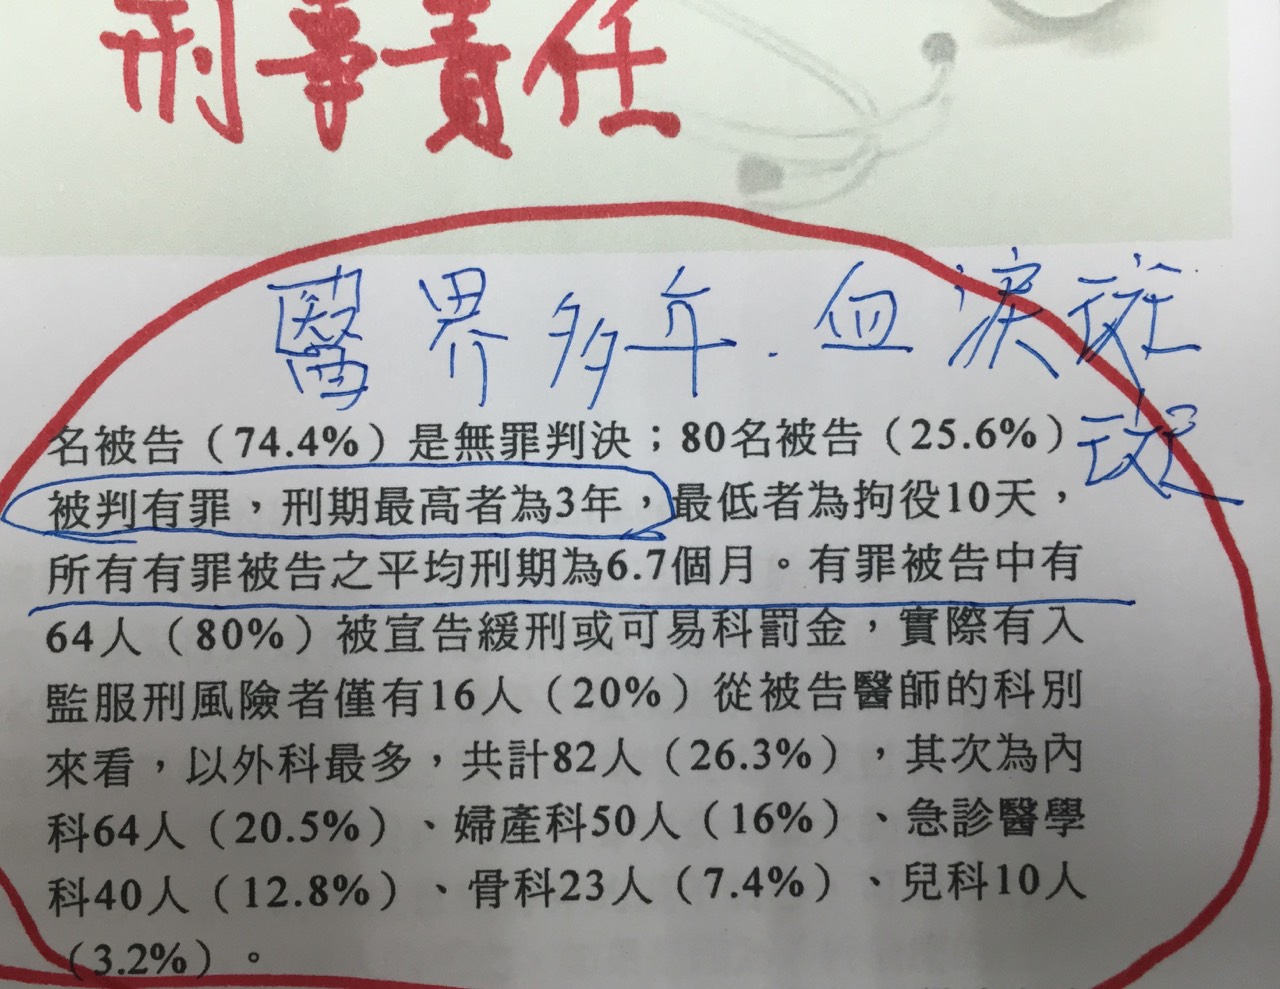 刑事責任
醫界多年.血淚斑
斑
名被告（74.4%）是無罪判決；80名被告（25.6%）
被判有罪，刑期最高者為3年，最低者為拘役10天，
所有有罪被告之平均刑期為6.7個月。有罪被告中有
64人（80%）被宣告緩刑或可易科罰金，實際有入
監服刑風險者僅有16人（20%）從被告醫師的科別
來看，以外科最多，共計82人（26.3%），其次為內
科64人（20.5%）、婦產科50人（16%）、急診醫學
科40人（12.8%）、骨科23人（7.4%）、兒科10人
（3.2%）。